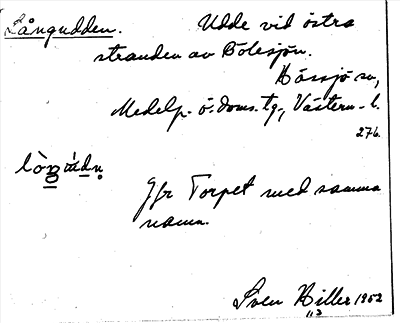 Långudden. Udde vid östra
stranden av Bölesjön.
Hässjö sn,
Medelp. ö. doms. tg., Västern. l.
276.
Jfr Torpet med samma
namn.
Sven Hiller 1952